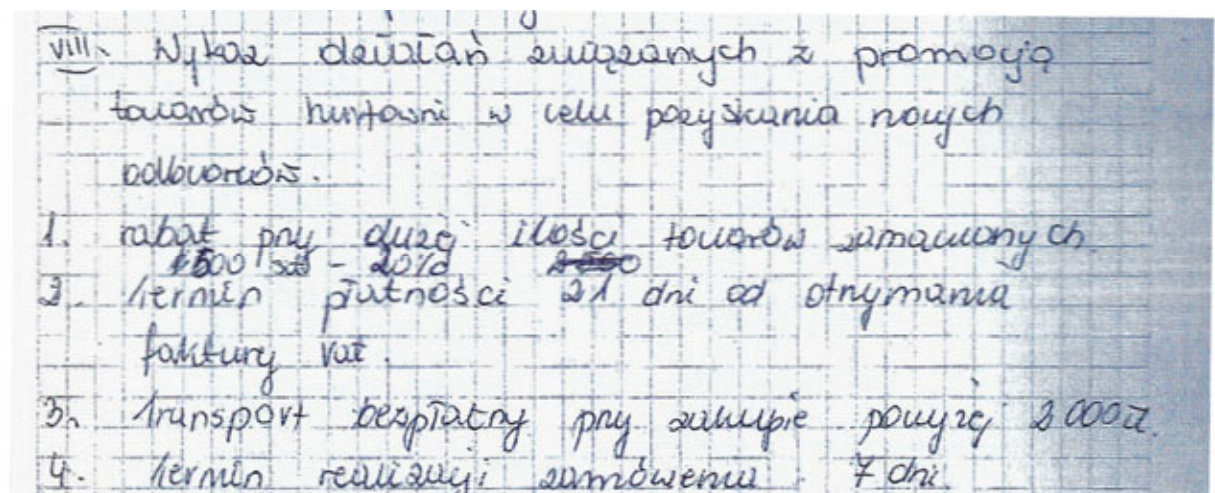 VIII. Wykaz działań związanych z promocją
towarów hurtowni w celu pozyskania nowych
odbiorców.
1. rabat przy dużej ilości towarów zamawianych
500 szt - 20%
2. Termin płatności 21 dni od otrzymania
faktury Vat.
3. Transport bezpłatny przy zakupie powyżej 2000zł.
4. Termin realizacji zamówienia 7 dni.